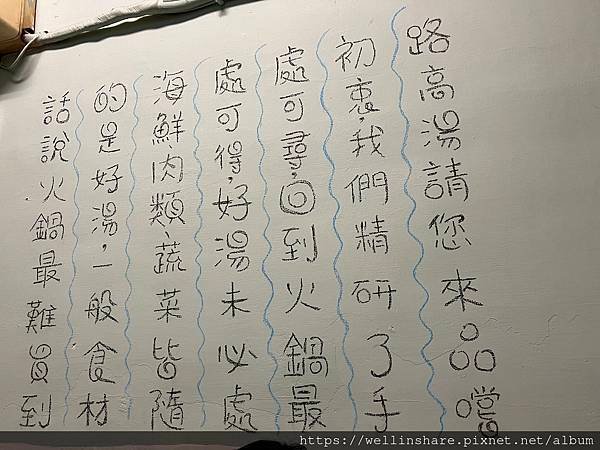 話說火鍋最難買到
的是好湯，一般食材
海鮮肉類、蔬菜皆隨
處可得，好湯未必處
處可尋，回到火鍋最
初衷，我們精研了手
路高湯請您來品嚐
https://wellinshare.pixnet.net/album